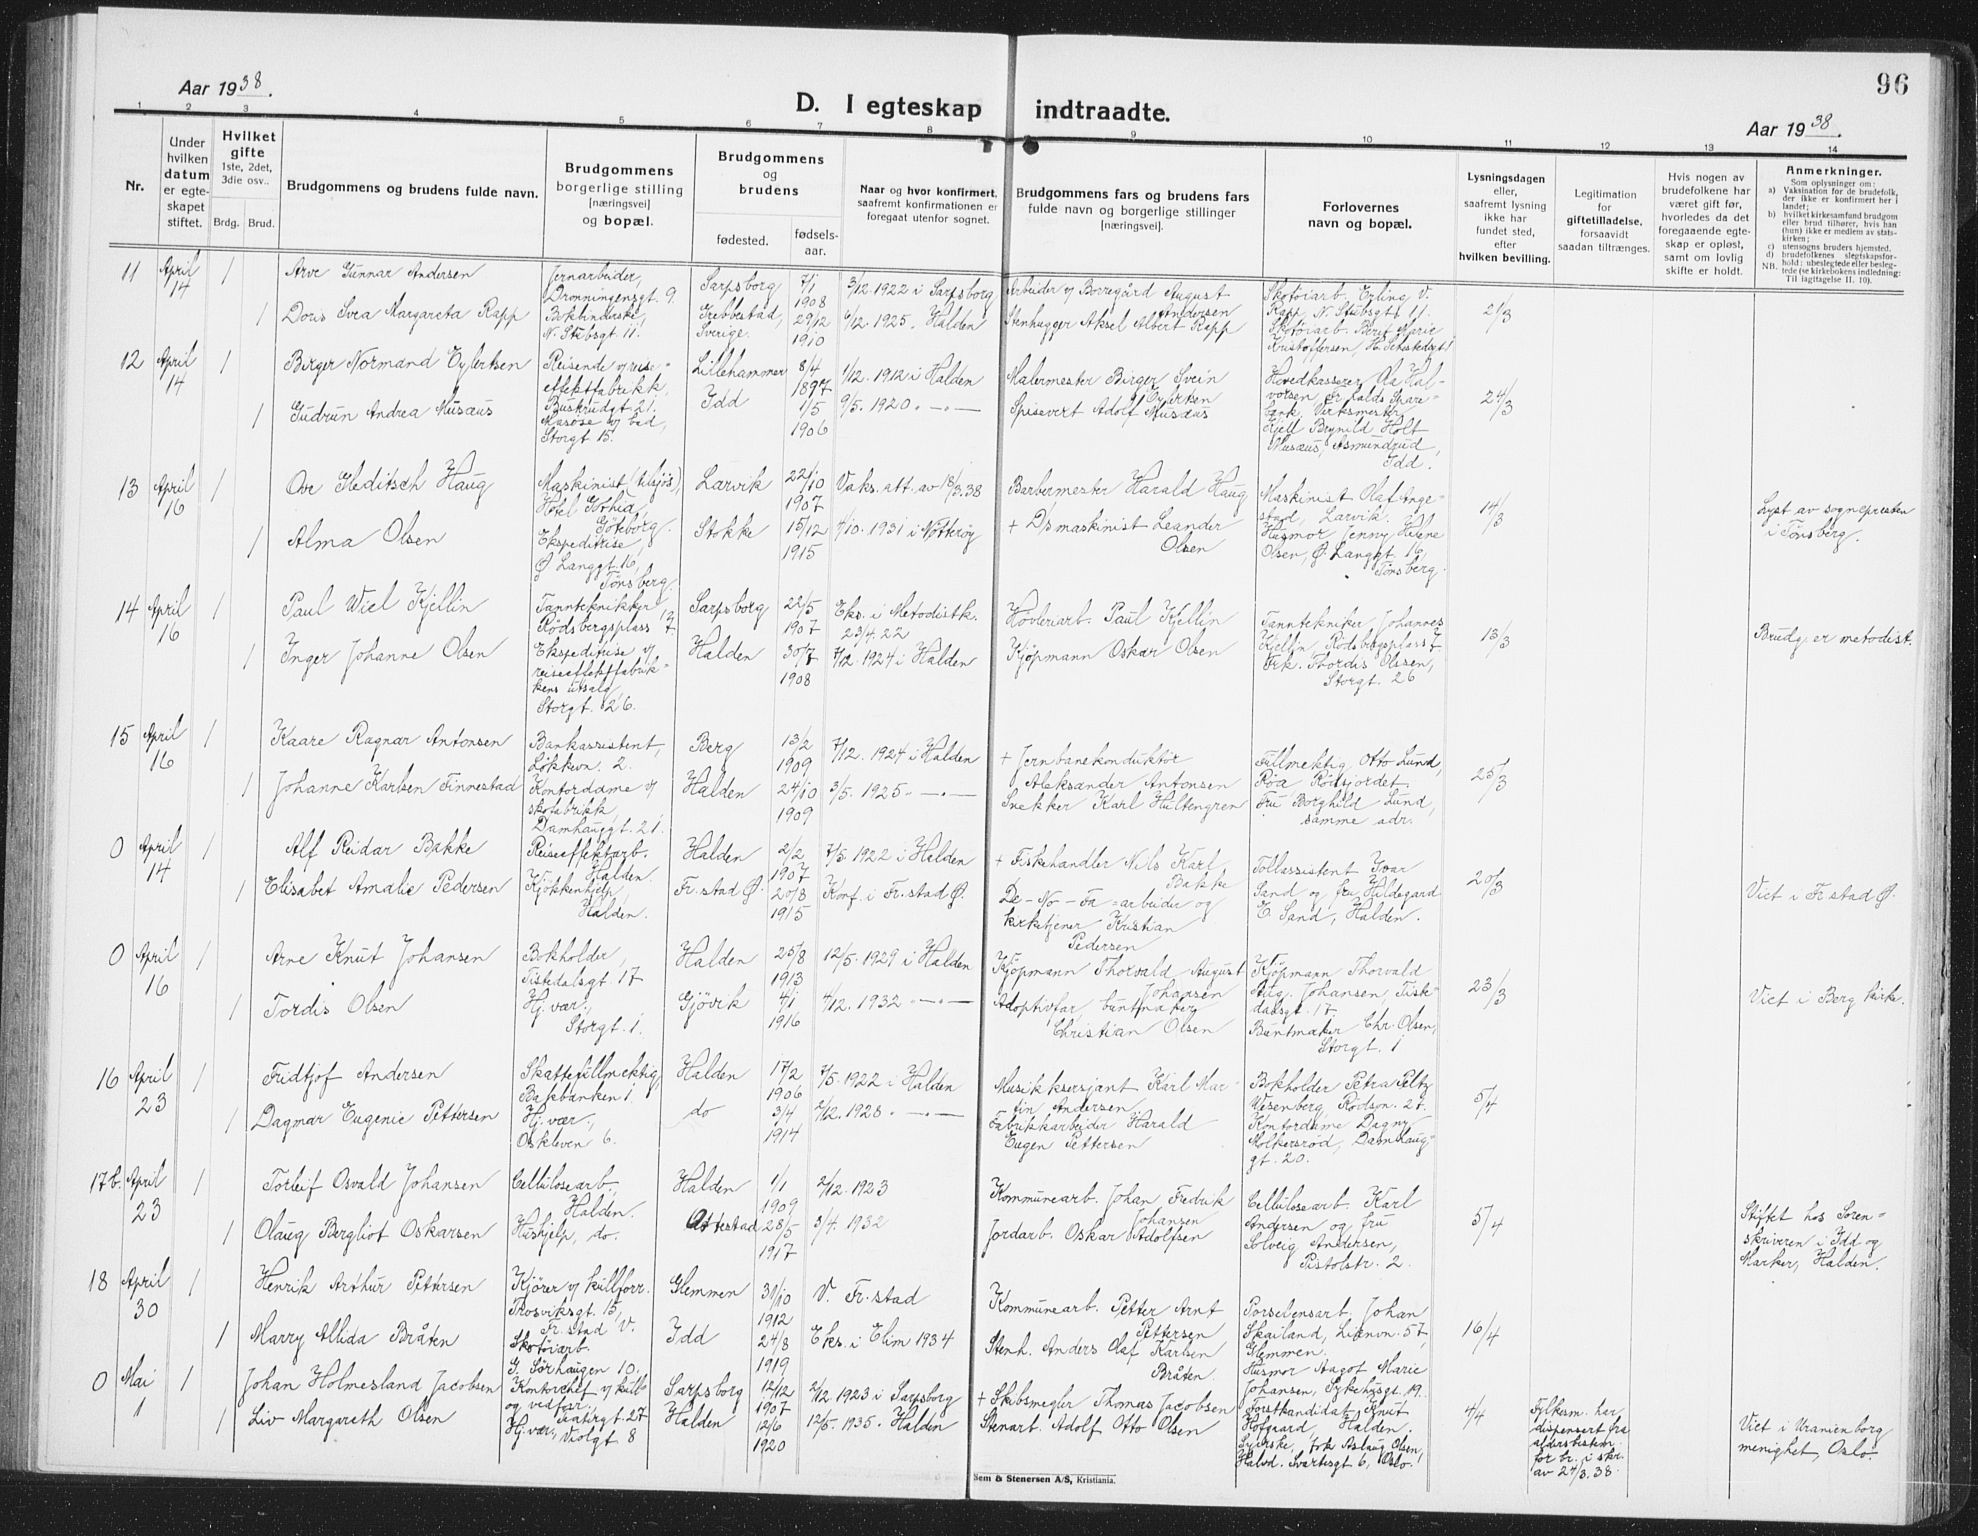 96
Aar 1938.
D. I egteskap indtraadte.
Aar 1938.
1 2 3 4 5 6 7 8 9 10 11 12 13 14
Nr.
Under hvilken datum er egteskapet stiftet.
Hvilket gifte 1ste, 2det, 3die osv..
Brdg. Brud.
Brudgommens og brudens fulde navn.
Brudgommens borgerlige stilling [næringsvei] og bopæl.
Brudgommens og brudens
fødested.
fødselsaar.
Naar og hvor konfirmert, saafremt konfirmationen er foregaat utenfor sognet.
Brudgommens fars og brudens fars fulde navn og borgerlige stillinger [næringsvei].
Forlovernes navn og bopæl.
Lysningsdagen eller, saafremt lysning ikke har fundet sted, efter hvilken bevilling.
Legitimation for giftetilladelse, forsaavidt saadan tiltrænges.
Hvis nogen av brudefolkene har været gift før, hvorledes da det foregaaende egteskap er opløst, samt om lovlig skifte er holdt.
Anmerkninger.
Som oplysninger om:
a) Vaksination for de brudefolk, der ikke er konfirmert her i landet;
b) hvilket kirkesamfund brudgom eller brud tilhører, hvis han (hun) ikke er medlem av statskirken;
c) utensogns bruders hjemsted.
d) brudefolkenes slegtskapsforhold: ubeslegtede eller beslegtede (se kirkebokens indledning:
NB. Til lagttagelse II. 10).
11 April 14 1 Arve Gunnar Andersen Jernarbeider, Dronningensgt. 9. Sarpsborg 7/1 1908 3/12. 1922 i Sarpsborg Arbeider v/ Borregård August Andersen Skotøiarb. Erling V. Rapp, N. Stubsgt. 11. 2/3
1 Doris Svea Margareta Rapp Bokbinderske, N. Stubsgt. 11. Grebbestad, Sverige. 29/12 1910 6/12. 1925. Halden Stenhugger Aksel Albert Rapp Skotøiarb. Berit Marie Kristoffersen,
12 April 14 1 Birger Normand Eylertsen Reisende v/ reiseeffektfabrikk, Buskrudgt. 21. Lillehammer 8/4 1897 1/12. 1912 i Halden Malermester Birger Svein Eylertsen Hovedkasserer Ola Halvorsen, Fr.halds Sparebank, Verksmester 24/3
1 Gudrun Andrea Musæus Masøse v/ bad, Storgt. 15. Idd 1/5 1906 9/5. 1920. -"- Spisevert Adolf Musæus Kjell Brynild Holt Musæus, Asmundrud, Idd.
13 April 16 1 Ove Heditsch Haug Maskinist (tilsjøs), Hotel Göthia, Göteborg. Larvik 22/10 1907 Vaks. att. av 18/3.38 Barbermester Harald Haug Maskinist Olaf Ange­stad, Larvik. 14/3 Lyst av sognepresten i Tønsberg.
1 Alma Olsen Ekspeditrise, Ø. Langgt. 16, Tønsberg. Stokke 15/12 1915 4/10. 1931 i Nøtterøy + D/s maskinist Leander Olsen Husmor Jenny Helene Olsen, Ø. Langgt. 16, Tønsberg.
14 April 16 1 Paul Wiel Kjellin Tanntekniker Rødsbergsplass 7 Sarpsborg 22/5 1907 Eks. i Metodistk. 23/4.22 Høvleriarb. Paul Kjellin Tanntekniker Johannes Kjellin, Rødsbergsplass 7 13/3 Brudg. er metodist.
1 Inger Johanne Olsen Ekspeditrise v/ reiseeffektfabrikkens utsalg, Storgt. 26. Halden 30/7 1908 7/12. 1924 i Halden Kjøpmann Oskar Olsen Frk. Thordis Olssen, Storgt. 26
15 April 16 1 Kaare Ragnar Antonsen Bankassistent, Løkkevn. 2. Berg 13/2 1909 7/12. 1924 i Halden + Jernbanekonduktør Aleksander Antonsen Fullmektig Otto Lund, Røa, Rødsjordet 25/3
1 Johanne Karlsen Finnestad Kontordame v/ skofabrikk, Damhauggt. 21. Halden 24/10 1909 3/5. 1925. -"- Snekker Karl Hultengren Fru Borghild Lund, samme adr.
0 April 14 1 Alf Reidar Bakke Reiseeffektarb. Halden. Halden 2/2 1907 7/5 1922 i Halden + Fiskehandler Nils Karl Bakke Tollassistent Ivar Sand og fru Hildegard E. Sand, Halden. 20/3 Viet i Fr.stad Ø.
1 Elisabet Amalie Pedersen Kjøkkenhjelp, Halden. Fr.stad Ø. 20/8 1915 Konf. i Fr.stad Ø. De-No-Fa-arbeider og kirketjener Kristian Pedersen
0 April 16 1 Arne Knut Johansen Bokholder, Tistedalsgt. 17 Halden 25/8 1913 12/5. 1929 i Halden Kjøpmann Thorvald August Johansen Kjøpmann Thorvald Aug. Johansen, Tistedalsgt. 17 23/3 Viet i Berg kirke.
1 Tordis Olsen Hj. vær., Storgt. 1. Gjøvik 4/1 1916 4/12. 1932 -"- Adoptivfar, buntmaker Christian Olsen Buntmaker Chr. Olsen, Storgt. 1
16 April 23 1 Fridtjof Andersen Skattefullmektig, Bakbanken 1. Halden 17/2 1906 7/5. 1922 i Halden Musikksersjant Karl Martin Andersen Bokholder Petra Peltz Wesenberg, Rødsvn. 27. 5/4
1 Dagmar Eugenie Pettersen Hj. vær., Oskleven 6. do 3/4 1914 2/12. 1928 -"- Fabrikkarbeider Harald Eugen Pettersen Kontordame Dagny Molkersrød, Damhauggt. 20.
17b. April 23 1 Torleif Osvald Johansen Cellulosearb., Halden. Halden 1/1 1909 2/12. 1923 Kommunearb. Johan Fredrik Johansen Cellulosearb. Karl Andersen og fru Solveig Andersen, Pistolstr. 2. 5/4 Stiftet hos Sorenskriveren i Idd og Marker, Halden.
1 Olaug Bergliot Oskarsen Hushjelp, do. 28/5 1917 3/4. 1932 Jordarb. Oskar Adolfsen
18 April 30 1 Henrik Arthur Pettersen Kjører v/ kullforr. Trosviksgt. 15, Fr.stad V. Glemmen 31/10 1912 V. Fr.stad Kommunearb. Petter Arnt Pettersen Porselensarb. Johan Skailand, Lienvn. 57, Glemmen. 16/4
1 Marry Allida Bråten Skotøiarb. G. Sørhaugen 10. Idd 24/8 1919 Eks. i Elim 1934 Stenh. Anders Olaf Karlsen Bråten Husmor Aagot Marie Johansen, Sykehusgt. 19.
0 Mai 1 1 Johan Holmesland Jacobsen Kontorchef v/ kull- og vedfor., Teatergt. 27 Sarpsborg 12/12 1907 2/12 1923 i Sarpsborg + Skibsmegler Thomas Jacobsen Forstkandidat Knut Hofgaard, Halden. 4/4 Fylkesm. har dispensert fra aldersbestem. for br. i skr. av 24/3. 38. Viet i Uranienborg menighet, Oslo.
1 Liv Margareth Olsen Hj. vær, Violgt 8 Halden 12/6 1920 12/5. 1935. Halden Stenarb. Adolf Otto Olsen Syerske, frk. Aslaug Olsen, Halvd. Svartesgt 6, Oslo.
Sem & Stenersen A/S, Kristiania.